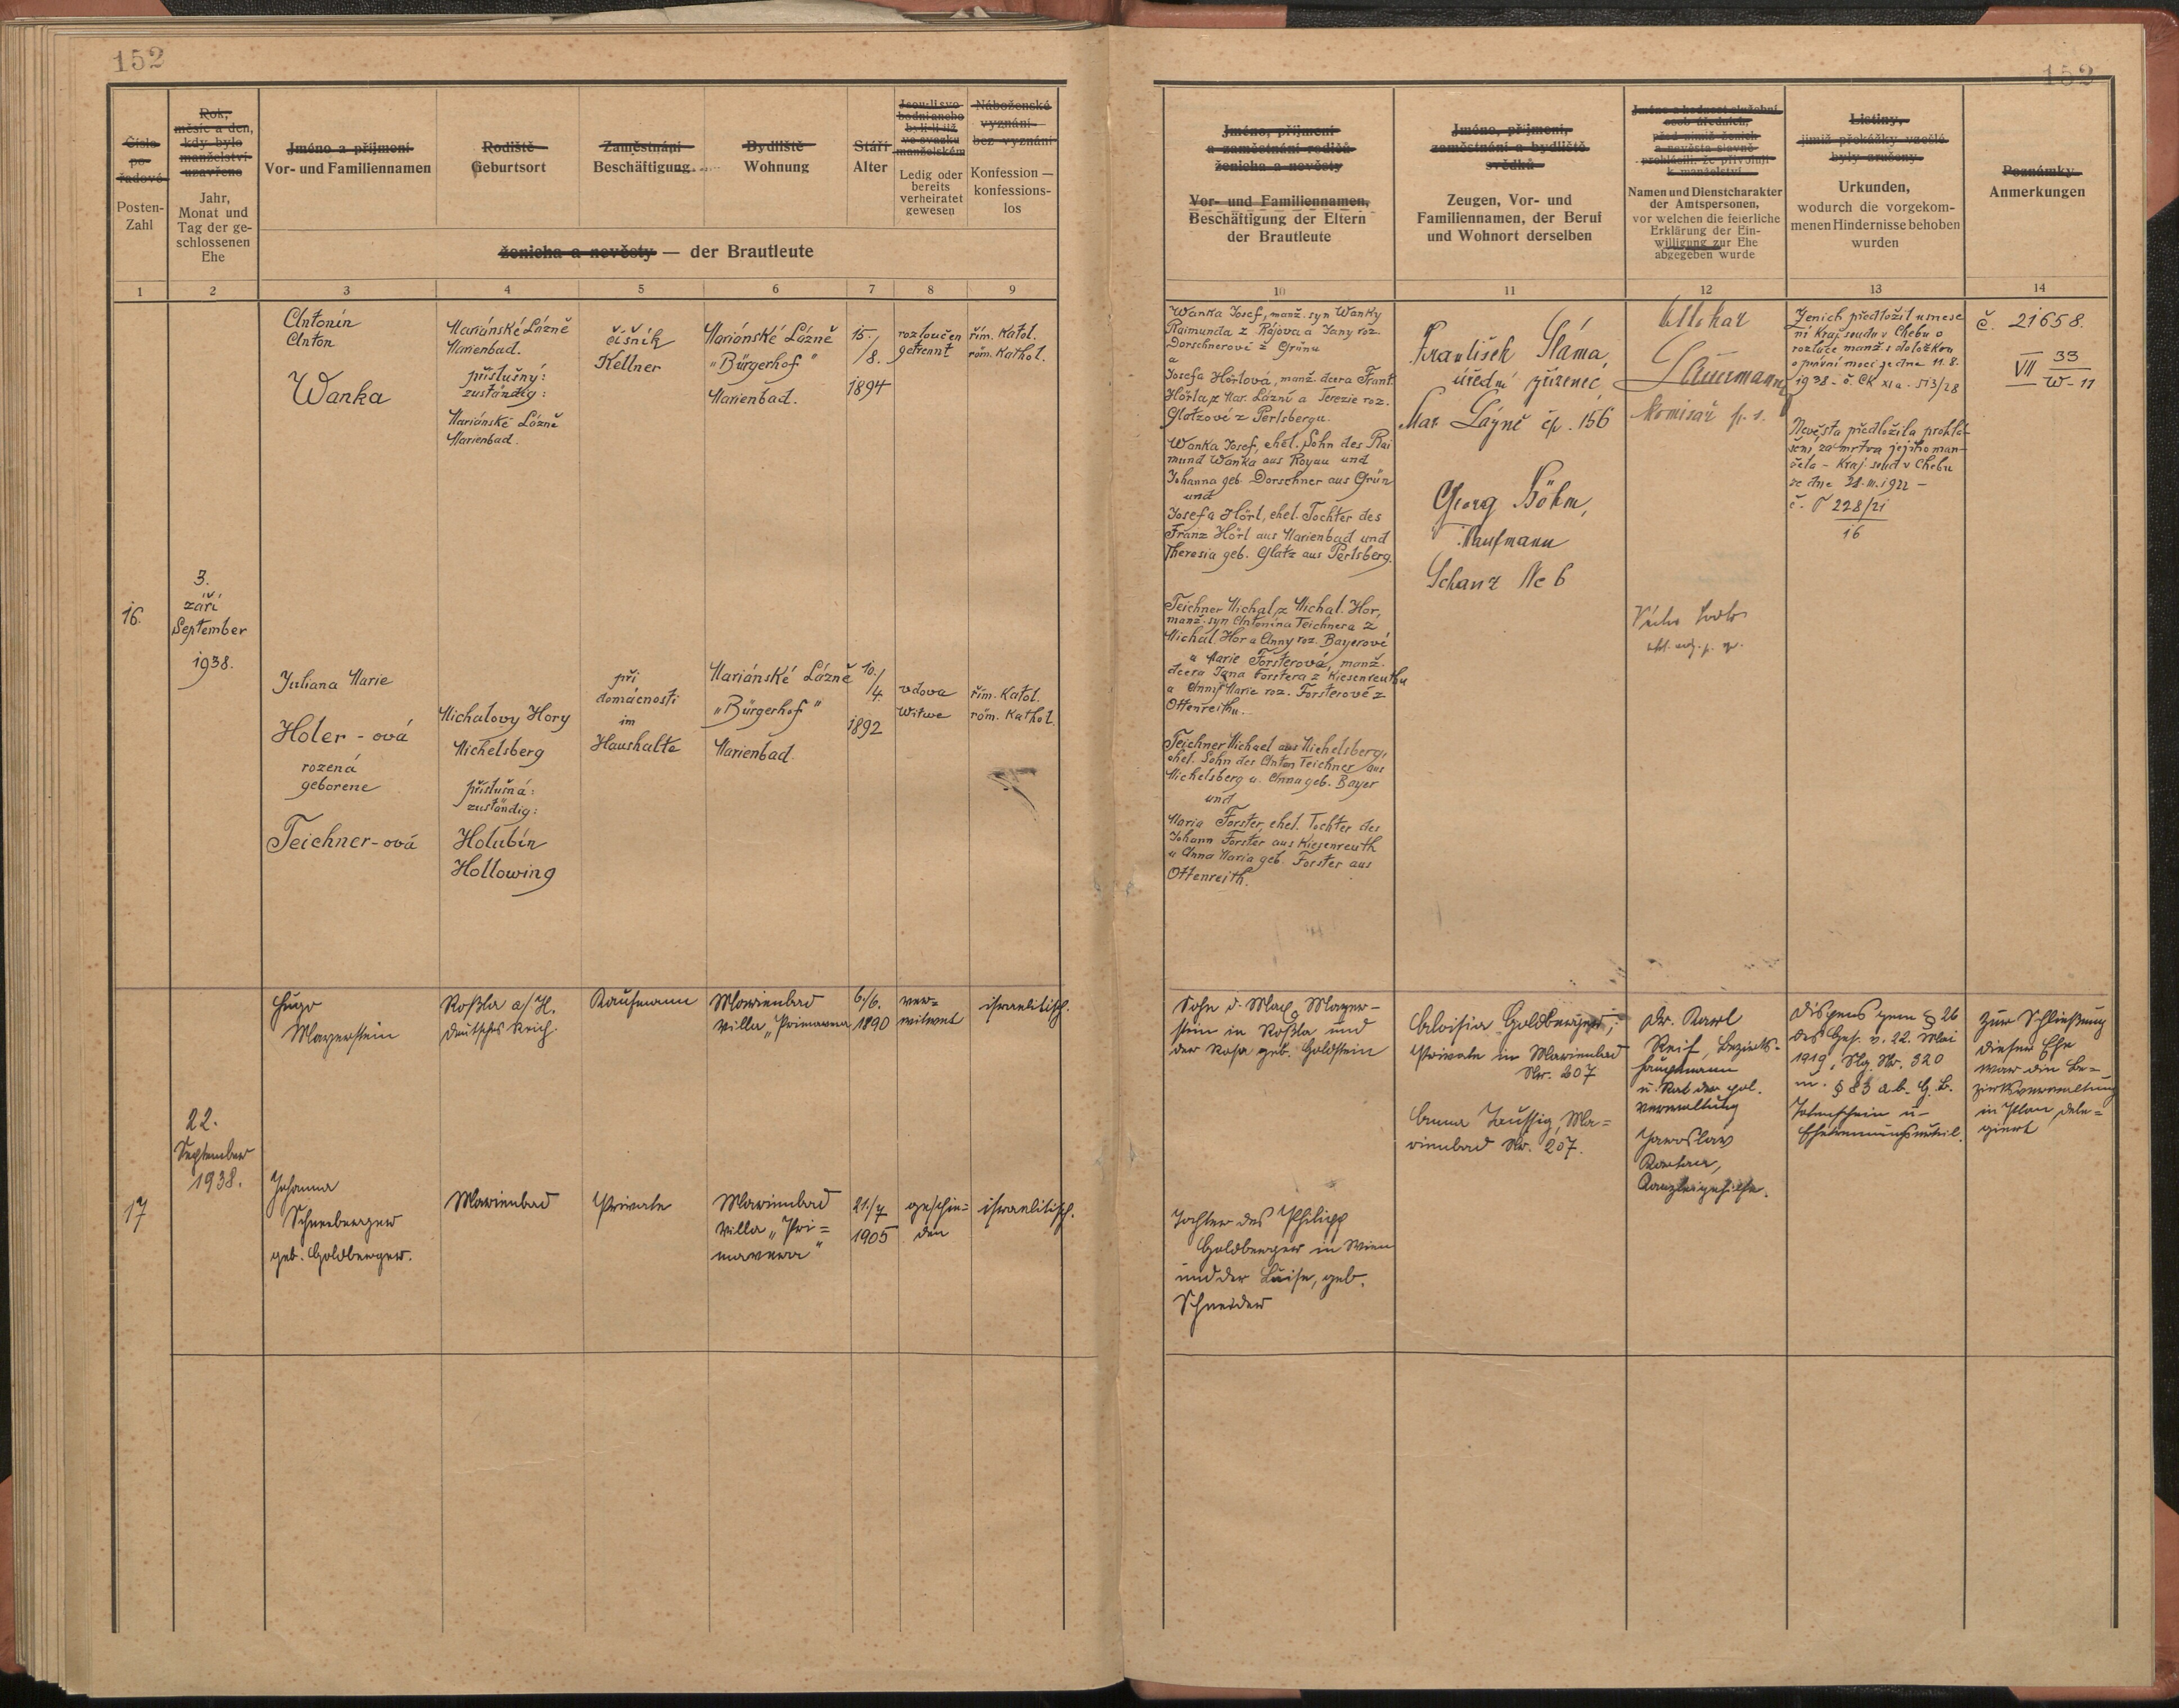 152
152
Číslo
po-
řadové
Posten-
Zahl
Rok,
měsíc a den,
kdy bylo
manželství
uzavřeno
Jahr,
Monat und
Tag der ge-
schlossenen
Ehe
Jméno a příjmení
Vor- und Familiennamen
Rodiště
Geburtsort
Zaměstnání
Beschäftigung
Bydliště
Wohnung
Stáří
Alter
Jsou-li svo-
bodní aneb
byli-li již
ve svazku
manželském
Ledig oder
bereits
verheiratet
gewesen
Náboženské
vyznání
bez vyznání
Konfession —
konfessions-
los
ženicha a nevěsty — der Brautleute
Jméno, příjmení
a zaměstnání rodičů
ženicha a nevěsty
Vor- und Familiennamen,
Beschäftigung der Eltern
der Brautleute
Jméno, příjmení,
zaměstnání a bydliště
svědků
Zeugen, Vor- und
Familiennamen, der Beruf
und Wohnort derselben
Jméno a hodnost služební
osob úředních,
před nimiž ženich
a nevěsta slavně
prohlásili, že přivolují
k manželství
Namen und Dienstcharakter
der Amtspersonen,
vor welchen die feierliche
Erklärung der Ein-
willigung zur Ehe
abgegeben wurde
Listiny,
jimiž překážky vzešlé
byly zrušeny
Urkunden,
wodurch die vorgekom-
menen Hindernisse behoben
wurden
Poznámky
Anmerkungen
1 2 3 4 5 6 7 8 9 10 11 12 13 14
16.
3.
září
September
1938.
Antonín
Anton
Wanka
Mariánské Lázně
Marienbad.
příslušný:
zuständig:
Mariánské Lázně
Marienbad.
číšník
Kellner
Mariánské Lázně
"Bürgerhof"
Marienbad.
15./
8.
1894
rozloučen
getrennt
řím. katol.
röm. kathol.
Juliana Marie
Holer - ová
rozená
geborene
Teichner-ová
Michalovy Hory
Michelsberg
příslušná:
zuständig:
Holubín
Hollowing
při
domácnosti
im
Haushalte
Mariánské Lázně
"Bürgerhof"
Marienbad
10./
4.
1892
vdova
Witwe
řím. katol.
röm. kathol.
Wanka Josef, manž. syn Wanky
Raimunda z Rájova a Jany roz.
Dorschnerové z Grünu
a
Josefa Hörlová, manž. dcera Frant.
Hörla z Mar. Lázní a Terezie roz.
Glatzové z Perlsbergu.
Wanka Josef, ehel. Sohn des Rai
mund Wanka aus Royau und
Johanna geb. Dorschner aus Grün
und
Josefa Hörl, ehel. Tochter des
Franz Hörl aus Marienbad und
Theresia geb. Glatz aus Perlsberg.
Teichner Michal z Michal. Hor,
manž. syn Antonína Teichnera z
Michal. Hor a Anny roz. Bayerové
a Marie Forsterová, manž.
dcera Jana Forstera z Kiesenreuthu
a Anny Marie roz. Forsterové z
Ottenreithu.
Teichner Michael aus Michelsberg,
ehel. Sohn des Anton Teichner aus
Michelsberg u. Anna geb. Bayer
und
Maria Forster, ehel. Tochter des
Johann Forster aus Kiesenreuth
u Anna Maria geb. Forster aus
Ottenreith.
František Sláma,
úřední zřízenec,
Mar. Lázně čp. 156
Georg Böhm,
Kaufmann
Schanz No 6
Ottokar
komisař p. s.
Ženich předložil usnese
ní kraj. soudu v Chebu o
rozluce manž. s doložkou
o právní moci ze dne 11.8.
1938 - č. CK XIa - 513/28
Nevěsta předložila prohlá-
šení za mrtva jejího man-
žela - Kraj. soud v Chebu
ze dne 21.III.1922 -
č. T 228/21
16
č. 21658.
VII 33
W-11
17
22.
September
1938.
Hugo
Mayerstein
Roßla a/H.
Deutsches Reich.
Kaufmann
Marienbad
Villa "Primavera
6./6.
1890
ver=
witwet
israelitisch.
Johanna
Schneeberger
geb. Goldberger.
Marienbad
Private
Marienbad
Villa "Pri=
mavera"
21./7
1905
geschie=
den
israelitisch.
Sohn d. Max Mayer-
stein in Roßla und
der Rosa geb. Goldstein
Tochter des Philipp
Goldberger in Wien
und der Luise, geb.
Schneider
Aloisia Goldberger,
Private in Marienbad
Nr. 207
Anna Taussig, Ma=
rienbad Nr. 207.
Dr. Karl
Reif, Bezirks-
hauptmann
u. Rat der pol.
Verwaltung
Jaroslav
Kanzleigehilfe.
Dispens gem § 26
des Ges. v. 22. Mai
1919, Slg. Nr. 320
u. § 83 a.b. G.B.
Totenschein u-
Ehetrennungsurteil.
Zur Schließung
dieser Ehe
war die Be=
zirksverwaltung
in Plan dele=
giert